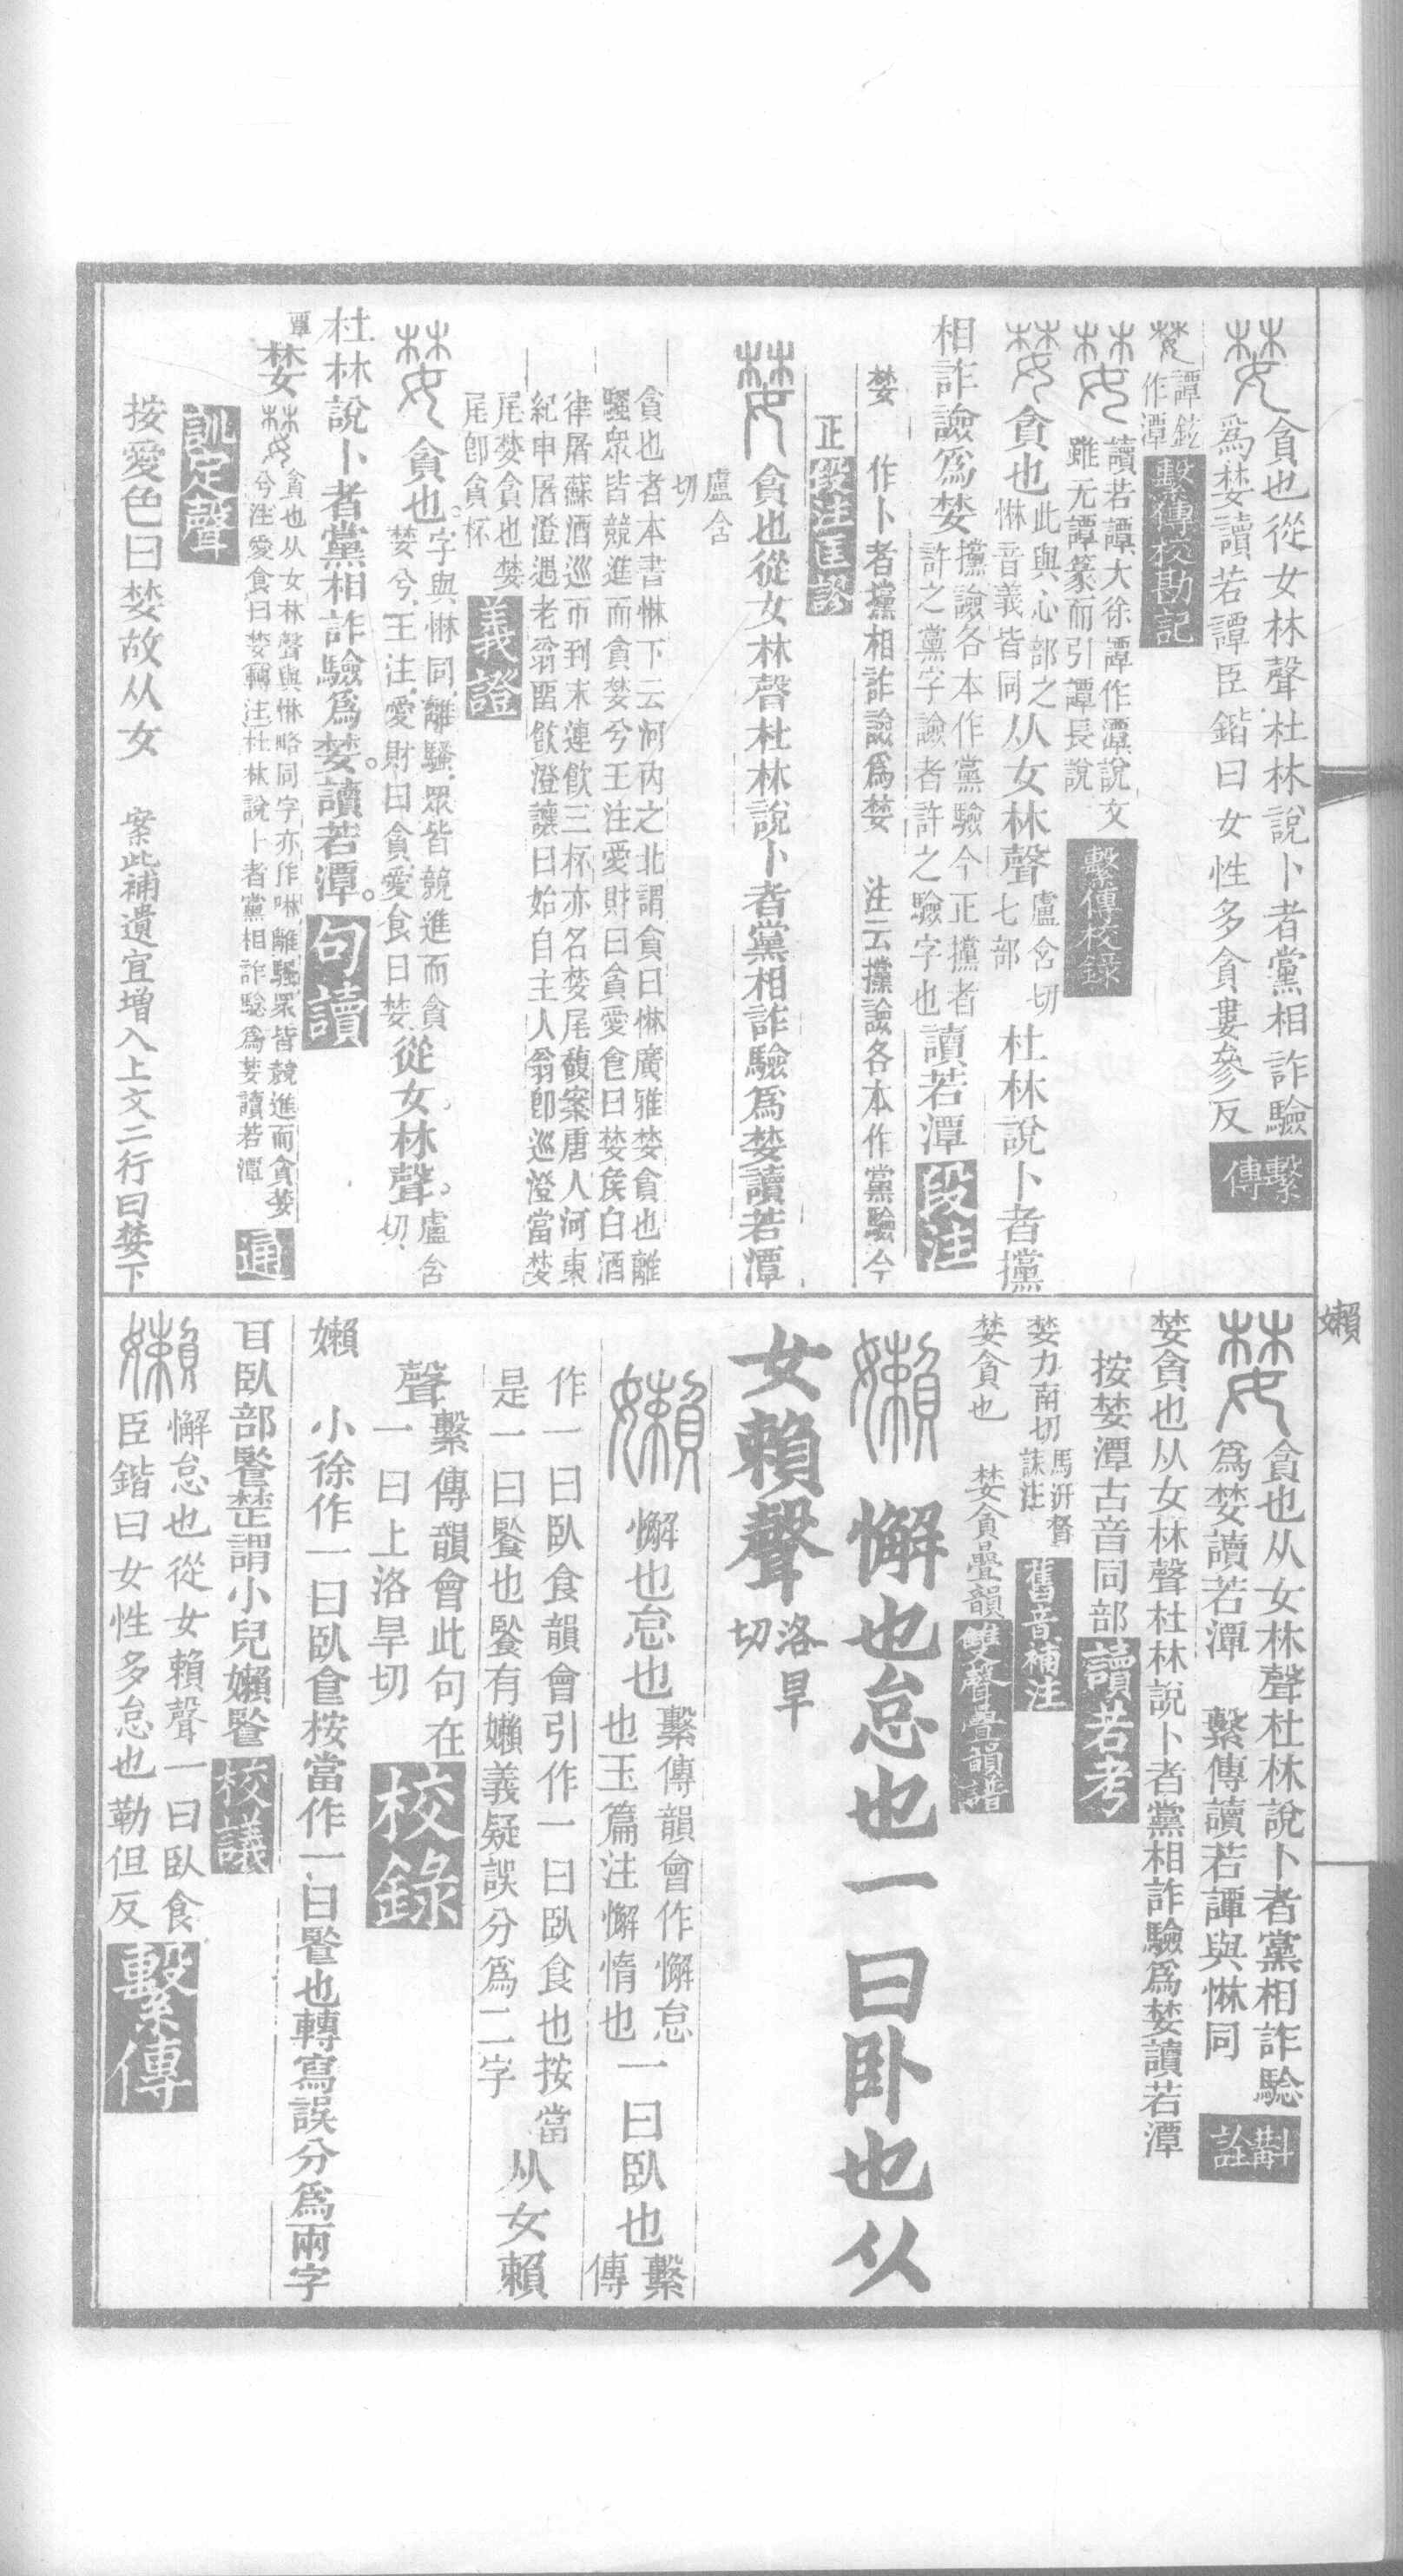 婪
貪也從女林聲杜林說卜者黨相詐驗
爲婪讀若譚臣鍇曰女性多貪婁參反
繫傳
婪
譚鉉
作潭
繫傳校勘記
婪
讀若譚大徐譚作潭說文
雖无譚篆而引譚長說
繫傳校錄
婪
貪也
此與心部之
惏音義皆同
从女林聲
盧含切
七部
杜林說卜者攩
相詐譣爲婪
攩譣各本作黨驗今正攩者
許之黨字譣者許之驗字也
讀若潭
段注
婪　作卜者攩相詐譣爲婪　注云攩譣各本作黨驗今
正
段注匡謬
婪
貪也從女林聲杜林說卜者黨相詐驗爲婪讀若潭
盧含
切
貪也者本書惏下云河內之北謂貪曰惏廣雅婪貪也離
騷衆皆競進而貪婪兮王注愛財曰貪愛食曰婪矦白酒
律屠蘇酒巡帀到末連飲三杯亦名婪尾馥案唐人河東
紀申屠澄遇老翁畱飲澄讓曰始自主人翁卽巡澄當婪
尾婪貪也婪
尾卽貪杯
義證
婪
貪也。
字與惏同、離騷、眾皆競進而貪
婪兮、王注、愛財曰貪、愛食曰婪、
從女林聲。
盧含
切、
杜林說卜者黨相詐驗爲婪。讀若潭。
句讀
譚
婪
婪
貪也从女林聲與惏略同字亦作啉離騷眾皆競進而貪婪
兮注愛食曰婪轉注杜林說卜者黨相詐驗爲婪讀若潭
通
訓定聲
按愛色曰婪故从女　案此補遺宜增入上文二行曰婪下
嬾
婪
貪也从女林聲杜林說卜者黨相詐驗
爲婪讀若潭　繫傳讀若譚與惏同
斠詮
婪貪也从女林聲杜林說卜者黨相詐驗爲婪讀若潭
按婪潭古音同部
讀若考
婪力南切
馬汧督
誄注
舊音補注
婪貪也　婪貪疊韻
雙聲疊韻譜
嬾
懈也怠也一曰臥也从
女賴聲
洛旱
切
嬾
懈也怠也
繫傳韻會作懈怠
也玉篇注懈惰也
一曰臥也
繫
傳
作一曰臥食韻會引作一曰臥食也按當
是一曰餮也餮有嬾義疑誤分爲二字
从女賴
聲
繫傳韻會此句在
一曰上洛旱切
校錄
嬾　小徐作一曰臥食桉當作一曰䀌也轉寫誤分爲兩字
目臥部䀌楚謂小兒嬾䀌
校議
嬾
懈怠也從女賴聲一曰臥食
臣鍇曰女性多怠也勒但反
繫傳